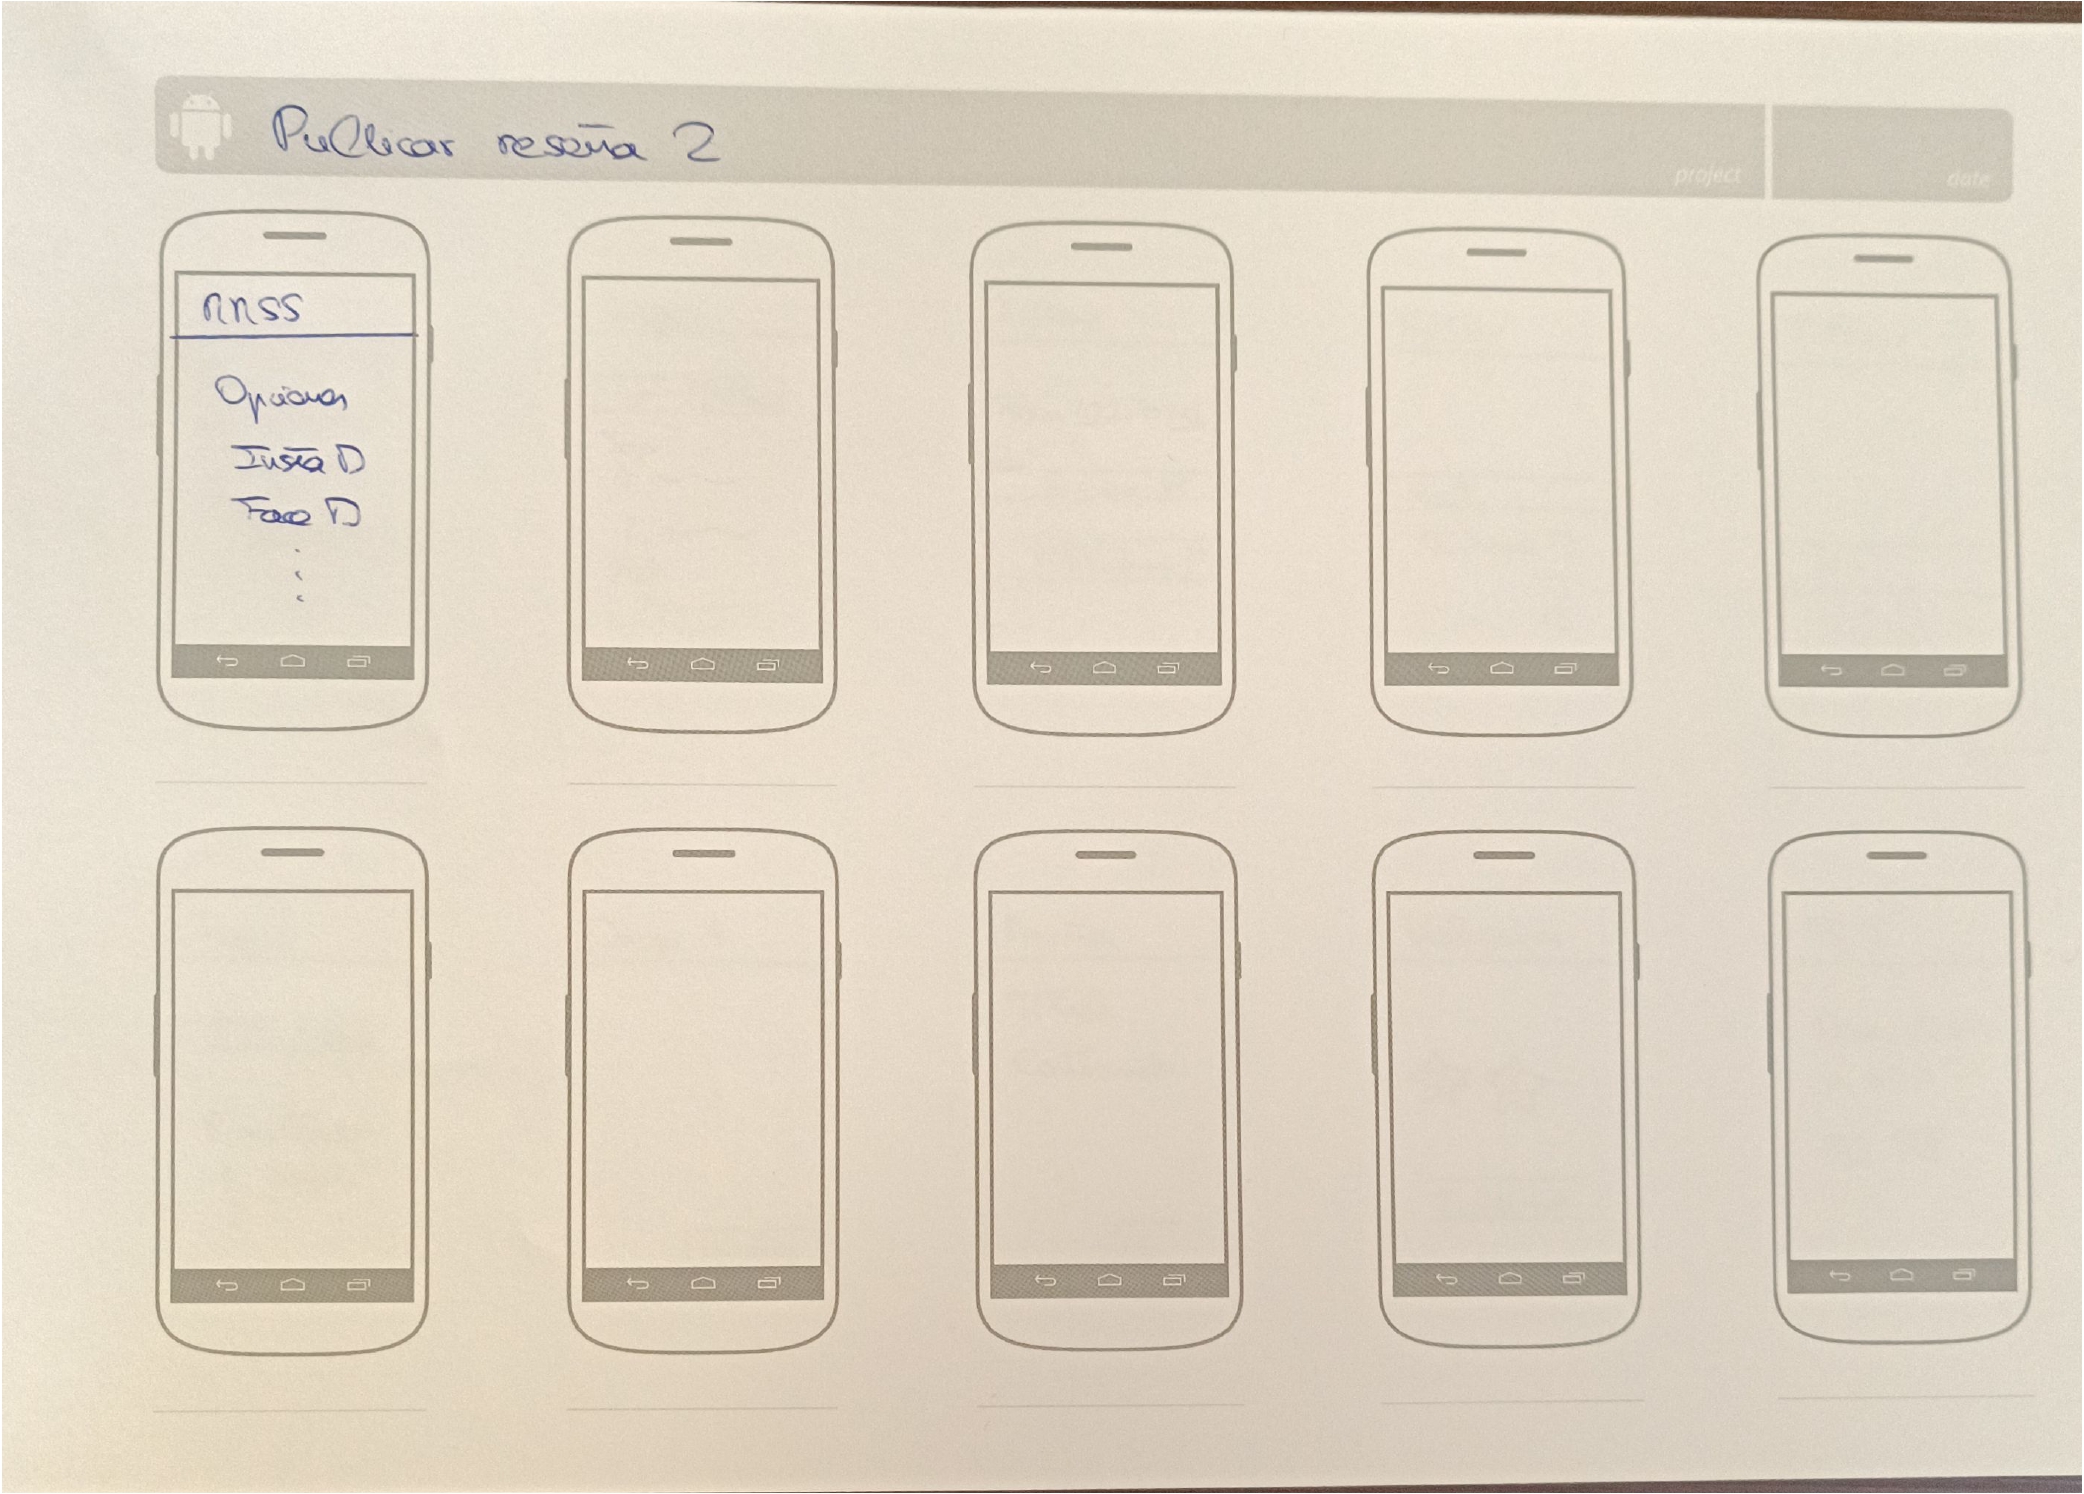 Publicar reseña 2
project
date
RRSS
Opciones
Insta D
Face D